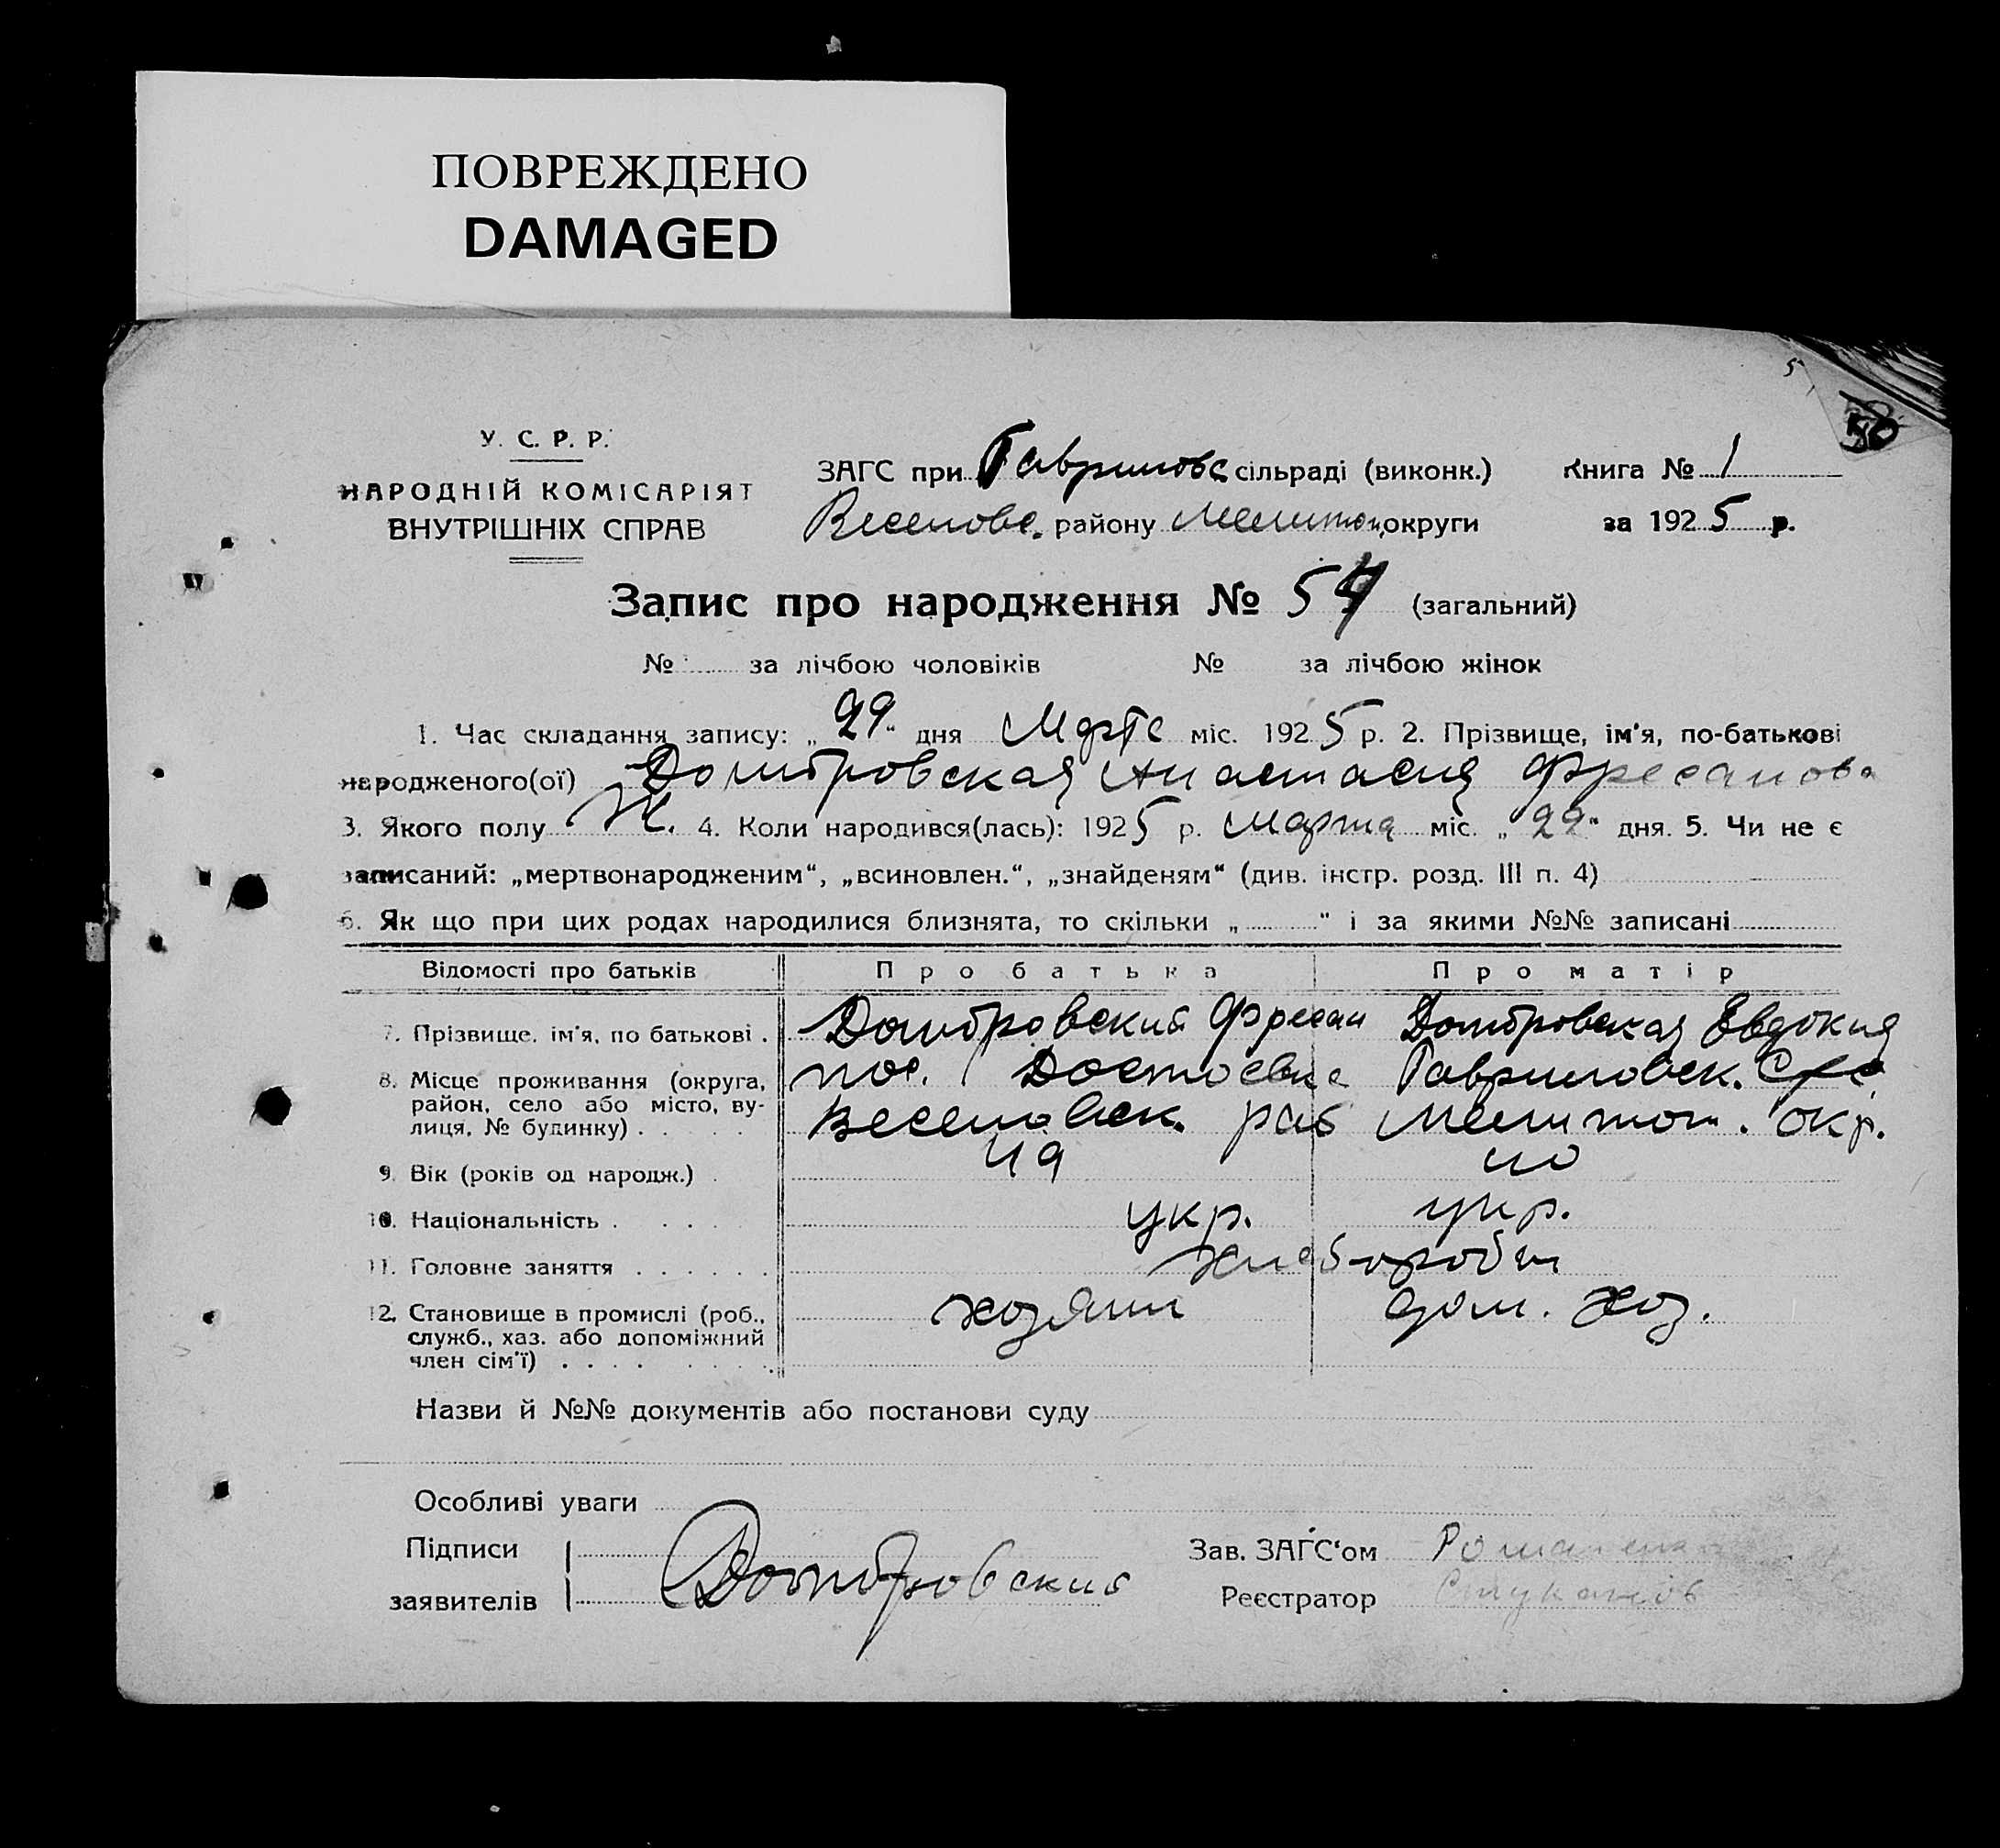 ПОВРЕЖДЕНО
DAMAGED
5
50
У. С. Р. Р.
НАРОДНІЙ КОМІСАРІЯТ
ВНУТРІШНІХ СПРАВ
ЗАГС при Гаврилове сільраді (виконк.) Книга № 1
Веселовс. району Мелитоп. округи за 1925 р.
Запис про народження № 54 (загальний)
№ за лічбою чоловіків № за лічбою жінок
1. Час складання запису: „29“ дня Марта міс. 1925 р. 2. Прізвище, ім'я, по-батькові
народженого(ої) Домбровская Анастасия Фресанова
3. Якого полу Ж. 4. Коли народився(лась): 1925 р. марта міс. „29“ дня. 5. Чи не є
записаний: „мертвонародженим“, „всиновлен.“, „знайденям“ (див. інстр. розд. III п. 4)
6. Як що при цих родах народилися близнята, то скільки „ “ і за якими №№ записані
Відомості про батьків Про батька Про матір
7. Прізвище, ім'я, по батькові . Домбровский Фресан Домбровская Евдокия
8. Місце проживання (округа, район, село або місто, вулиця, № будинку) . пос. Достоевка Гавриловск.
Веселовск. раб Мелитоп. окр.
9. Вік (років од народж.) . 49 40
10. Національність . . . . укр. укр.
11. Головне заняття . . . . . . хлебороби
12. Становище в промислі (роб., служб., хаз. або допоміжний член сім'ї) . . . . . . . . хозяин дом. хоз.
Назви й №№ документів або постанови суду
Особливі уваги
Підписи
заявителів Домбровский
Зав. ЗАГС'ом Романенко
Реєстратор Стуканов